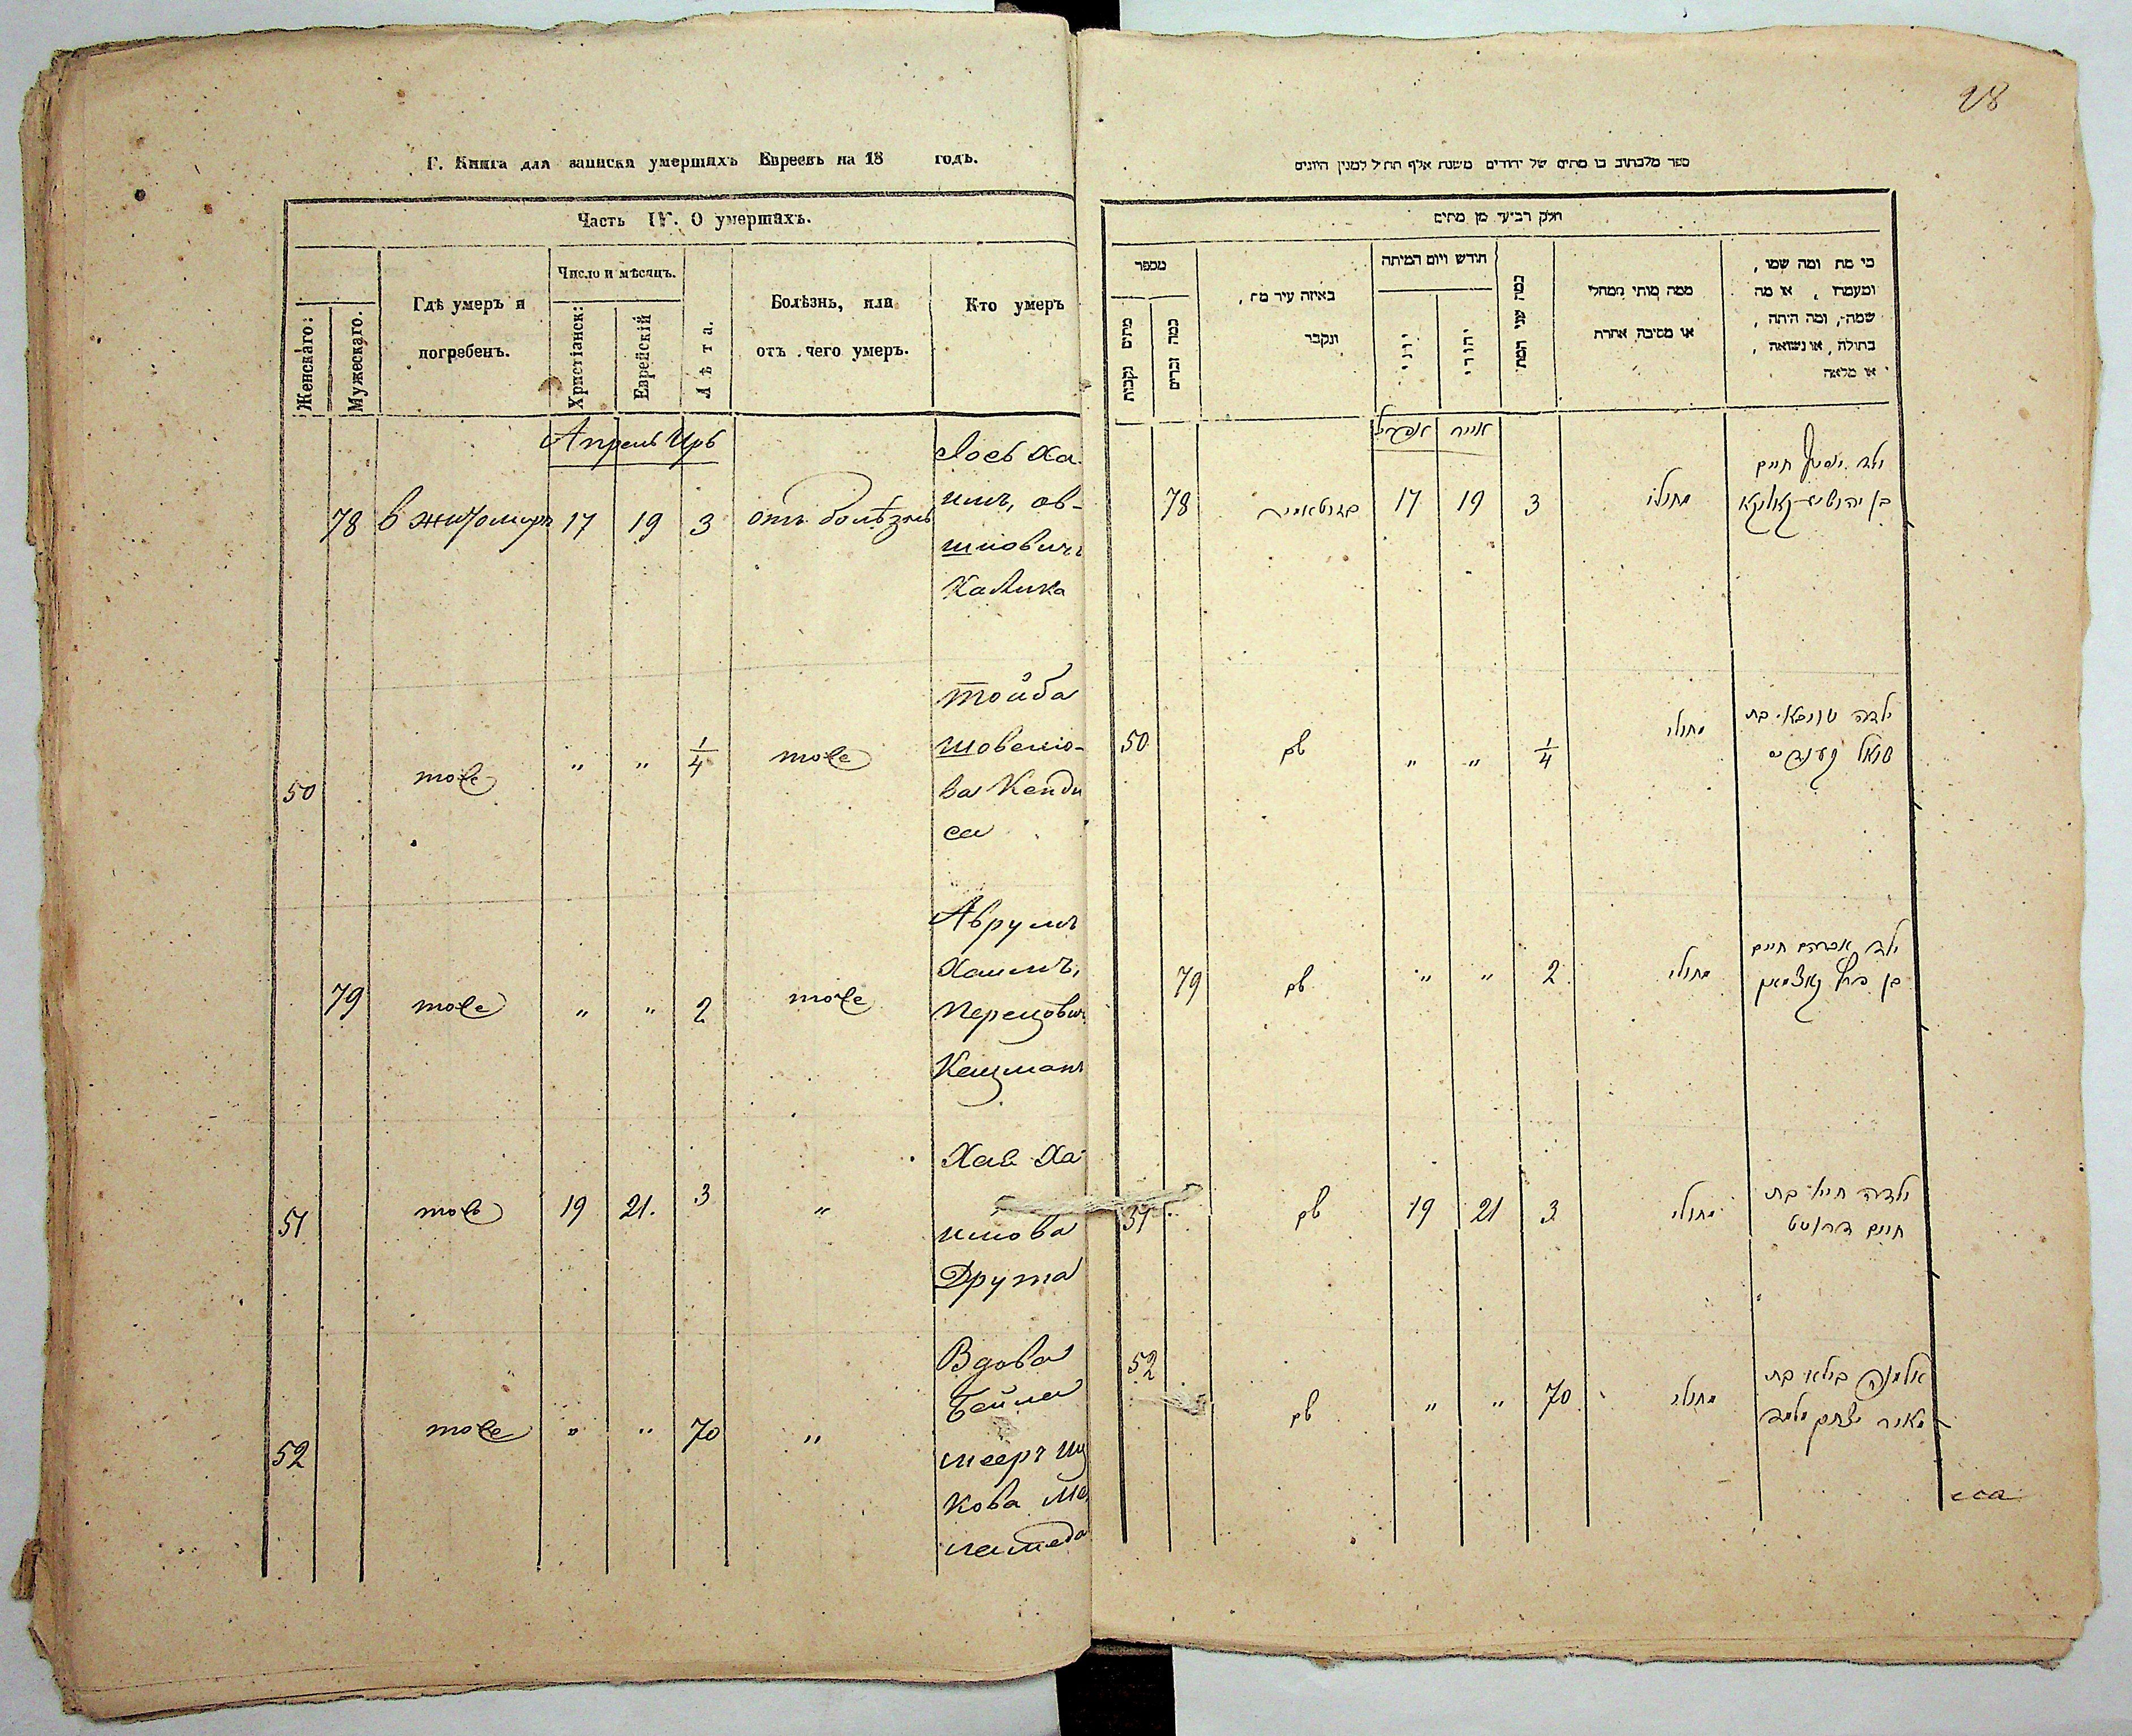 28
Г. Книга для записки умершихъ Евреевъ на 18 годъ.
Часть IV. О умершахъ.
Женскаго:
Мужескаго.
Гдѣ умеръ и
погребенъ.
Число и мѣсяцъ.
Христіанск:
Еврейскій
Лѣта.
Болѣзнь, или
отъ чего умеръ.
Кто умеръ
Апрель Иръ
78 в житомиръ 17 19 3 отъ болѣзнь
Иось Ха
имъ, ов-
шиовичъ
Калика
50 тоже " " 1/4 тоже
тойба
шовелио-
ва Кенди
са
79 тоже " " 2 тоже
Аврумъ
Хаимъ,
Перецович
Кацманъ
51 тоже 19 21. 3 "
Хая Ха
имова
Друта
52 тоже " " 70 "
Вдова
Бейла
мееръ Иц
кова
ספר מלכתוב בו מתים של יהודים משנת אלף תת״ל למנין היונים
חלק רביעי מן מתים
מספר
מתים נקבות
כמה זכרים
באיזה עיר מת,
ונקבר
חודש ויום המיתה
יוני
יהודי
כמה שני המת
ממה מותי ממחלי
או מסיבה אחרת
מי מת ומה שמו,
ומעמדו, או מה
שמה, ומה היתה,
בתולה, או נשואה,
או מלאה
אפריל אייר
78 17 19 3 מחולי
ילד יוסף חיים
50 שם " " 1/4 מחולי
ילדה טויבא בת
79 שם " " 2 מחולי
ילד אברהם חיים
בן פרץ קאצמאן
51 שם 19 21 3 מחולי
ילדה חייא בת
חיים דרוטא
52 שם " " 70 מחולי
אלמנה ביילא בת
מאיר יצחק מלמד